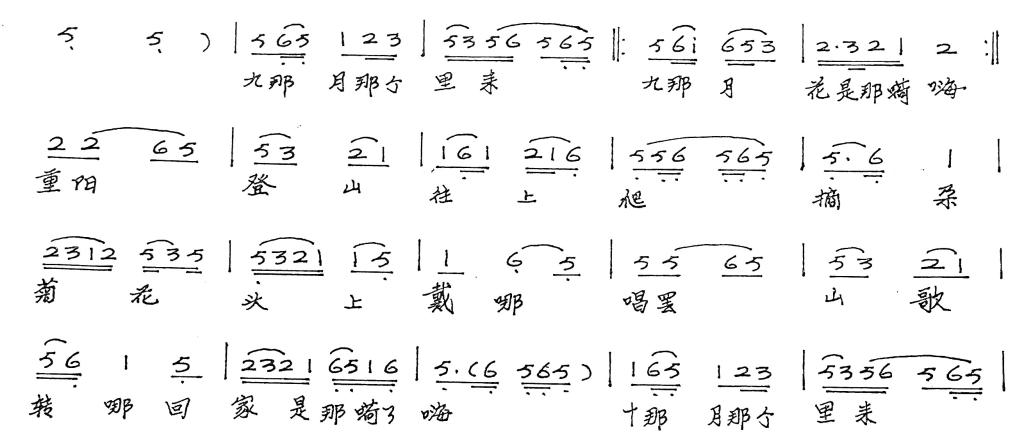 5 5 ) | 565 123 | 5356 565 |: 561 653 | 2·321 2 :|
九那 月那个 里来 九那 月 花是那嗬 嗨
22 65 | 53 21 | 161 216 | 556 565 | 5·6 1 |
重阳 登 山 往 上 爬 摘 朵
2312 535 | 5321 15 | 1 6 5 | 55 65 | 53 21 |
菊 花 头 上 戴 哪 唱罢 山 歌
56 1 5 | 2321 6516 | 5·(6 565) | 165 123 | 5356 565 |
转 哪 回 家 是那 了 嗨 十那 月那个 里来